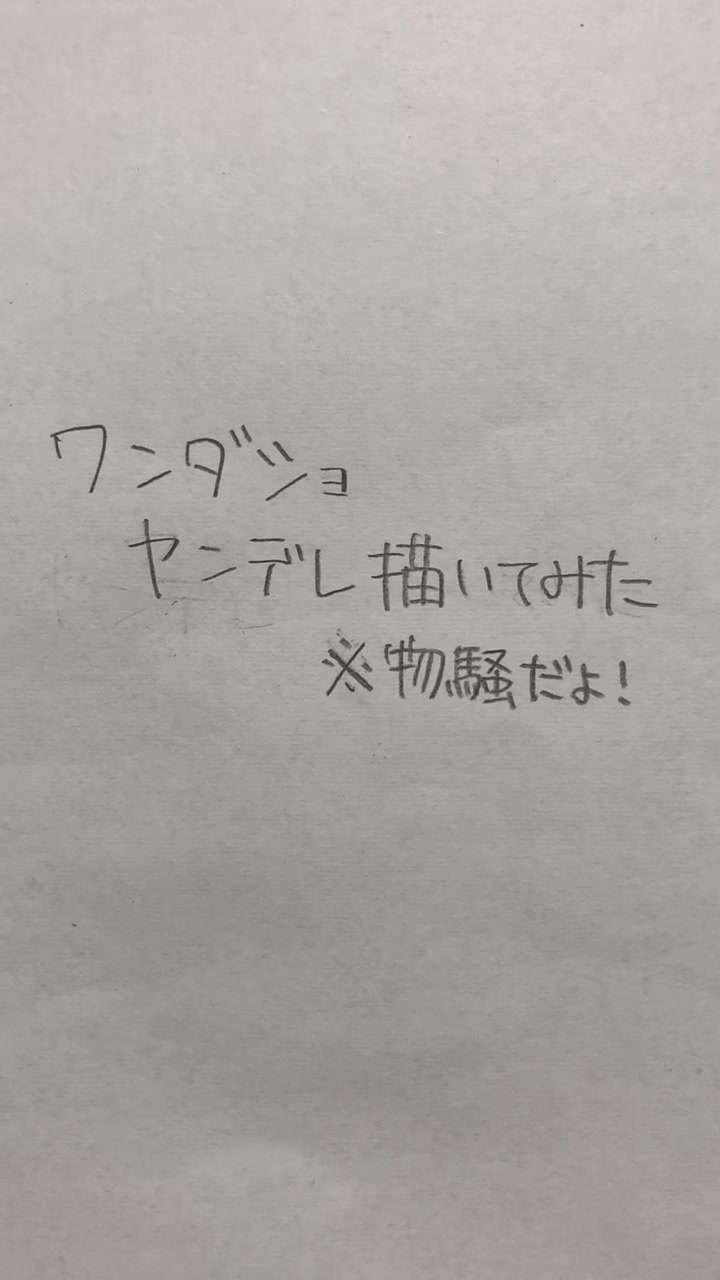 ワンダショ
ヤンデレ描いてみた
※物騒だよ!